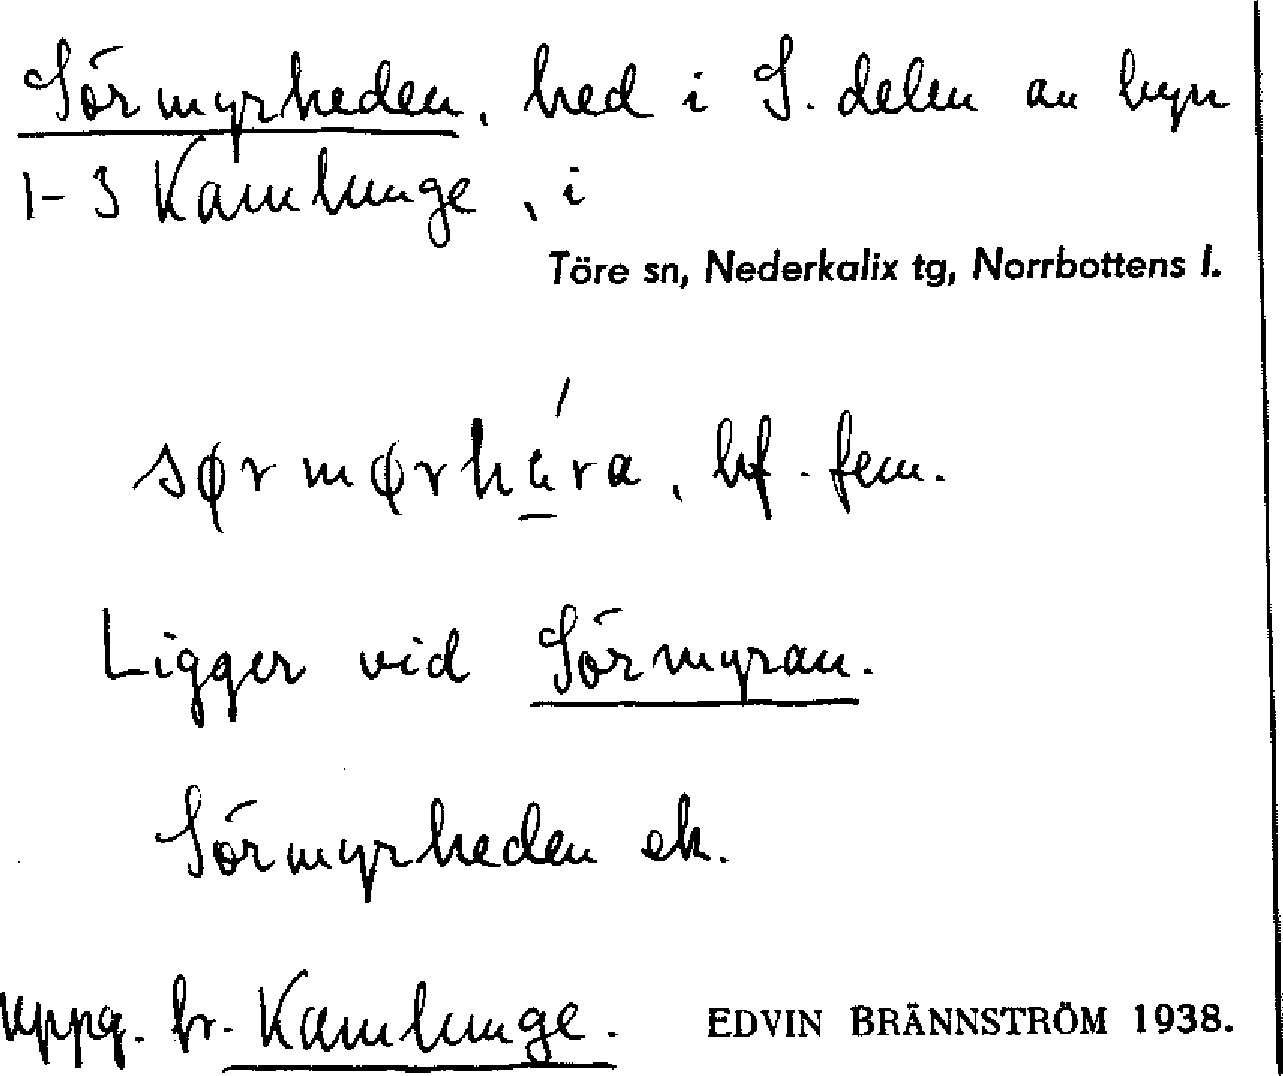 Sörmyrheden, hed i S. delen av byn
1-3 Kamlunge, i
Töre sn, Nederkalix tg, Norrbottens l.
bf. fem.
Ligger vid Sörmyran.
Sörmyrheden ek.
uppg. br. Kamlunge. EDVIN BRÄNNSTRÖM 1938.